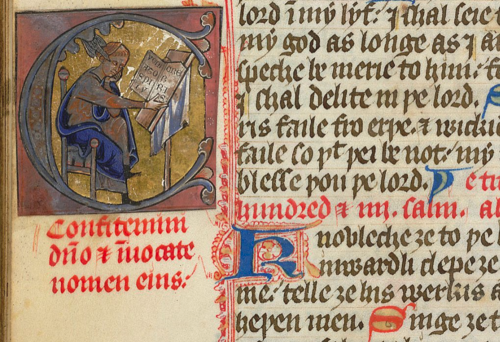 Confitemini
dño & īuocate
nomen eius:
lord ī my lyf: I schal seie
my god as longe as I a
speche be merie to him: 
I schal delite in þe lord. S
ris faile fro erþe. & wickid
faile so þt þei be not: my
blesse þou þe lord.
hundred & iiij. salm. al
Knowleche ȝe to þe l
inwardli clepe ȝe
me: telle ȝe his werkis a
heþen men. Singe ȝe t